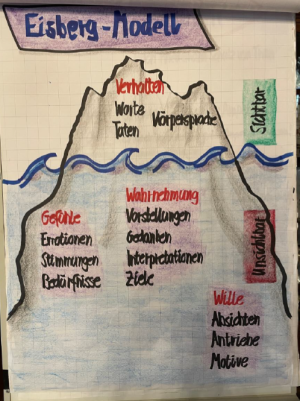 Eisberg-Modell
Verhalten
Worte
Taten
Körpersprache
Sichtbar
Gefühle
Emotionen
Stimmungen
Bedürfnisse
Wahrnehmung
Vorstellungen
Gedanken
Interpretationen
Ziele
Unsichtbar
Wille
Absichten
Antriebe
Motive